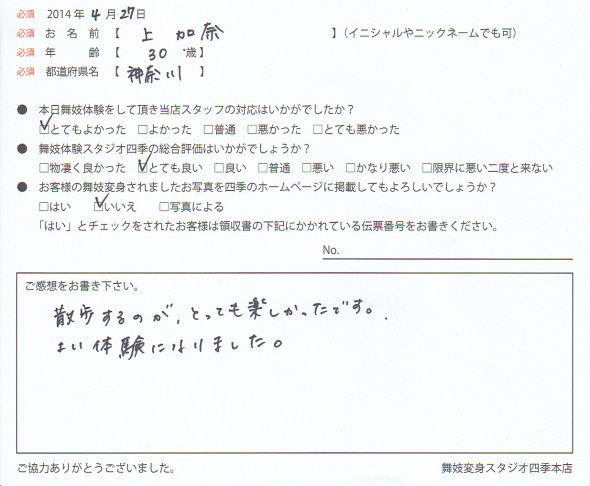 必須 2014年 4 月 27日
必須 お 名 前 【 上 加奈 】(イニシャルやニックネームでも可)
必須 年 齢 【 30 歳】
必須 都道府県名 【 神奈川 】
● 本日舞妓体験をして頂き当店スタッフの対応はいかがでしたか？
☑とてもよかった □よかった □普通 □悪かった □とても悪かった
● 舞妓体験スタジオ四季の総合評価はいかがでしょうか？
□物凄く良かった ☑とても良い □良い □普通 □悪い □かなり悪い □限界に悪い二度と来ない
● お客様の舞妓変身されましたお写真を四季のホームページに掲載してもよろしいでしょうか？
□はい ☑いいえ □写真による
「はい」とチェックをされたお客様は領収書の下記にかかれている伝票番号をお書きください。
No.
ご感想をお書き下さい。
散歩するのが、とっても楽しかったです。
よい体験になりました。
ご協力ありがとうございました。 舞妓変身スタジオ四季本店